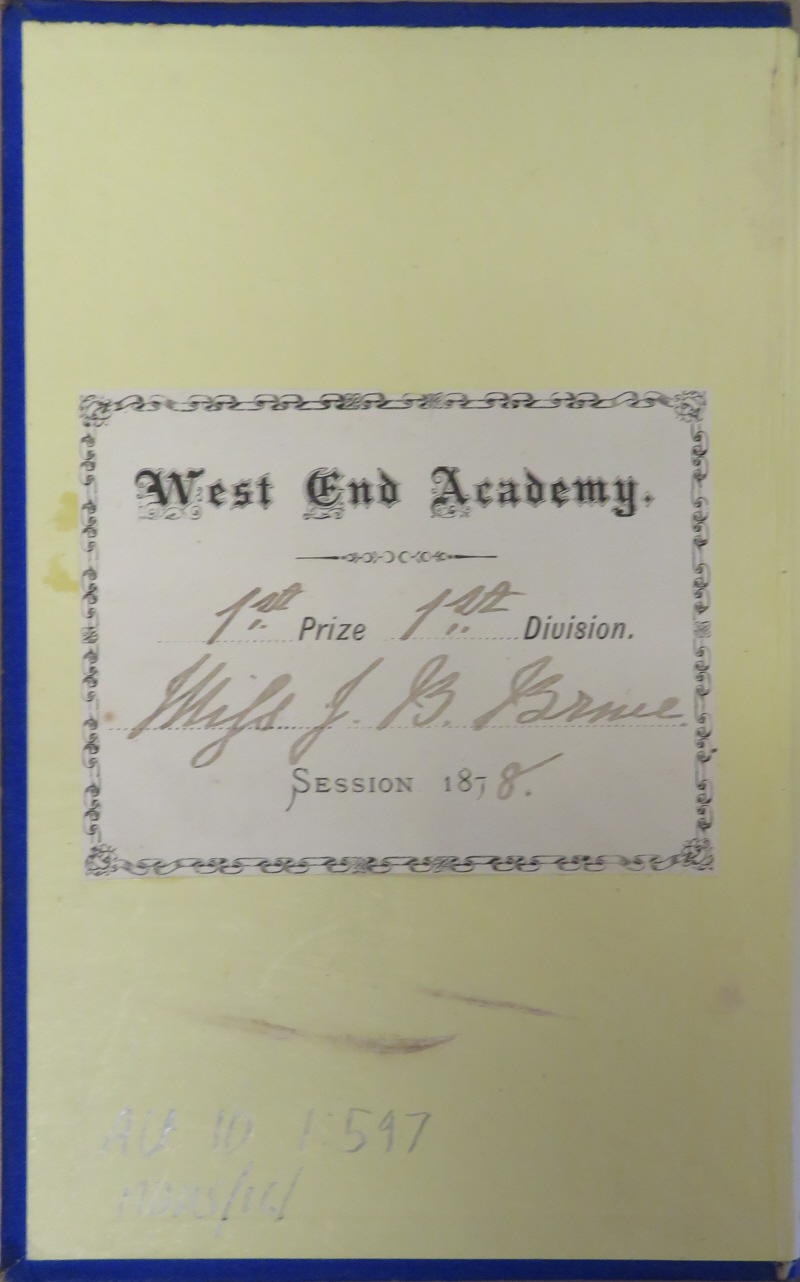 West End Academy.
1st Prize 1st Division.
Miss J. B. Bruce.
Session 1878.
1:597